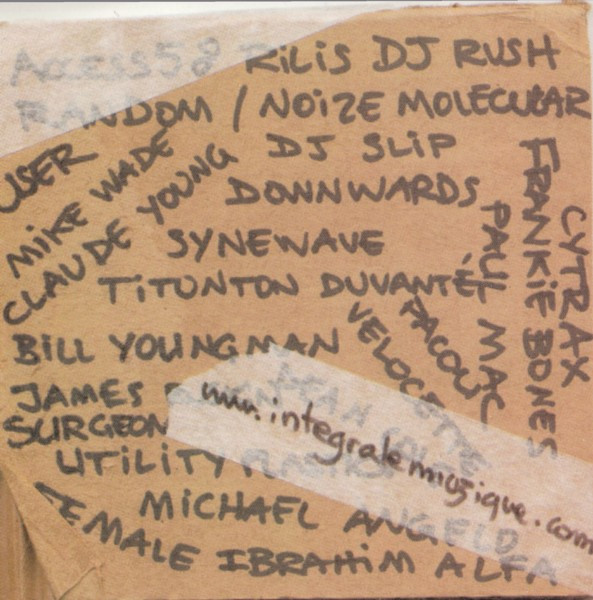 ACCESS58 RILIS DJ RUSH
RANDOM / NOIZE MOLECULAR
USER
MIKE WADE
CLAUDE YOUNG
DJ SLIP
DOWNWARDS
SYNEWAVE
TITUNTON DUVANTÉ
FRANKIE BONES
CYTRAX
PAUL MAC
PACOU
VELOCETTE
BILL YOUNGMAN
JAMES
SURGEON
UTILITY PLASTICS
www.integralemuzique.com
MICHAEL ANGELO
FEMALE IBRAHIM ALFA